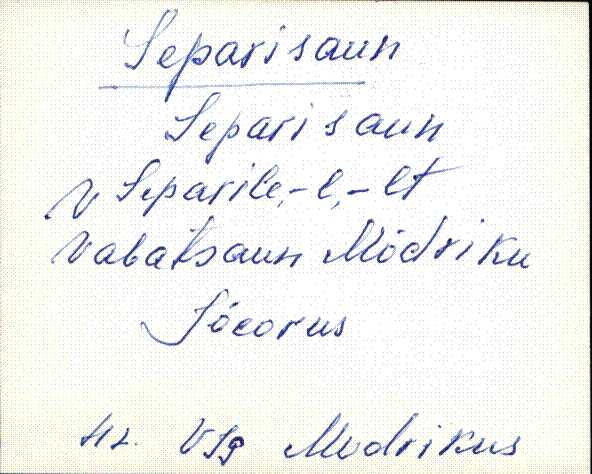 Separisaun
Separisaun
V Separile, -l, -lt
Vabatsaun Mõdriku
Jõeorus
Hz. VJg Modrikus